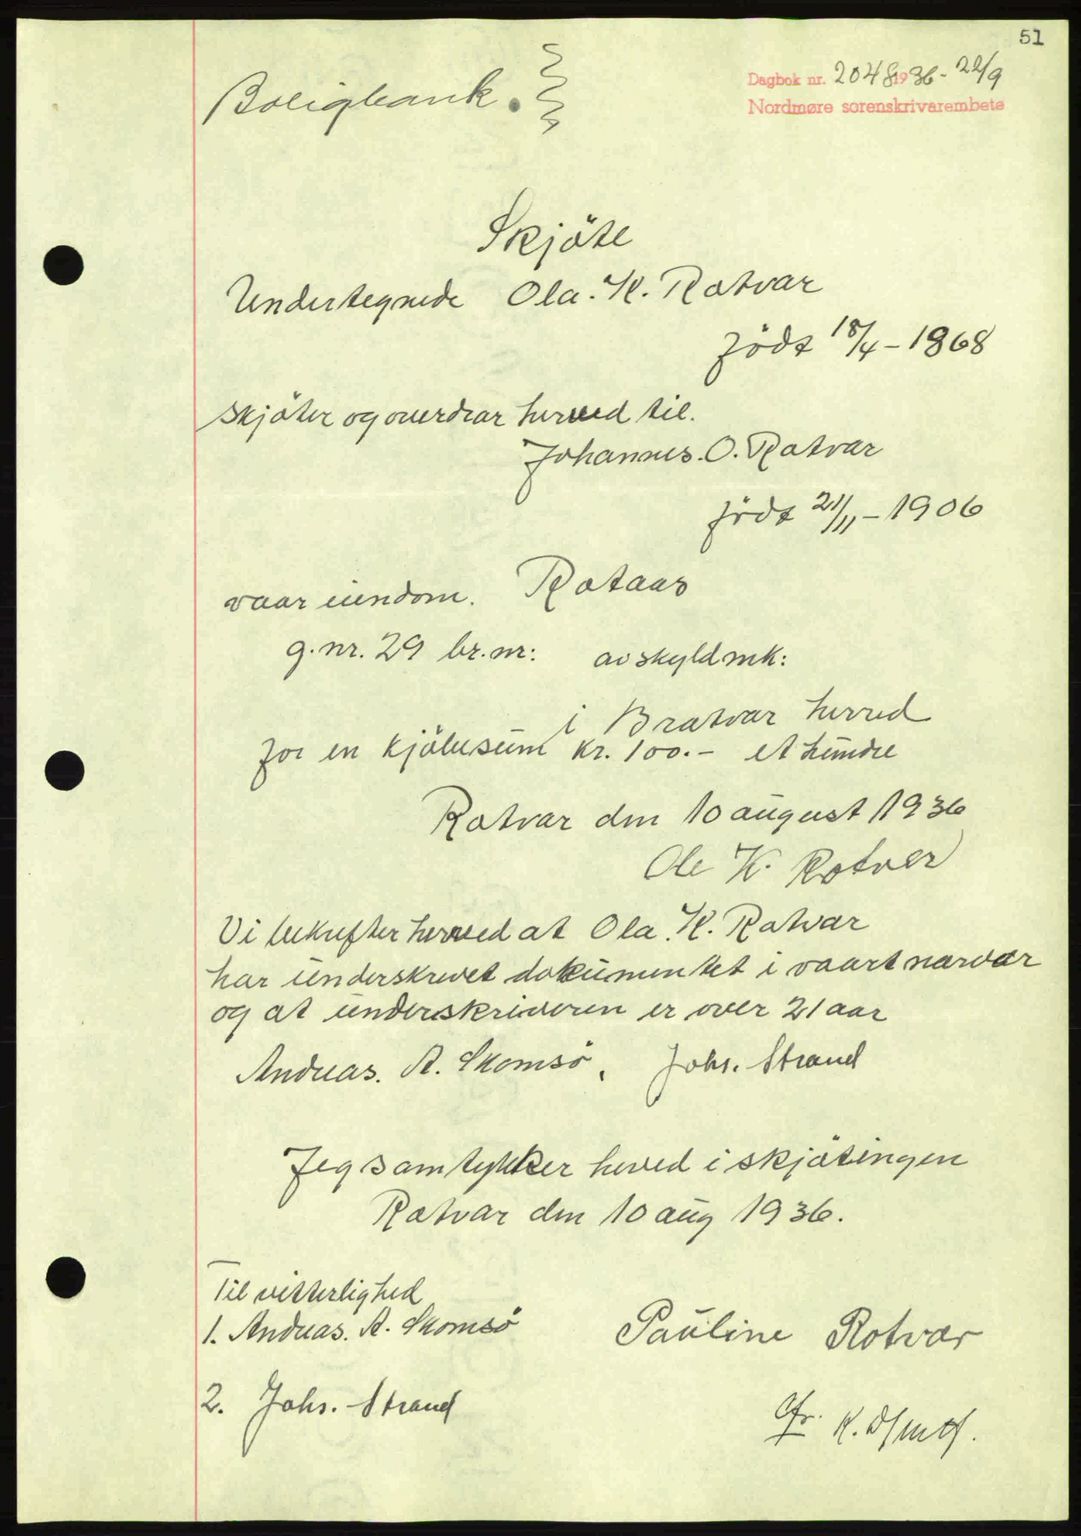 51
Boligbank.
Dagbok nr. 2048 1936 - 22/9
Nordmøre sorenskrivarembete
Skjöte
Undertegnede Ola. K. Rotvar
födt 18/4 - 1868
skjöter og overdrar herved til.
Johannes. O. Rotvar
födt 21/11 - 1906
vaar eiendom. Rotaas
g.nr. 29 br.nr: av skyldmk:
i Bratvar herred
for en kjöbesum kr. 100.- et hundre
Rotvar den 10 august 1936
Ole K. Rotver
Vi bekrefter herved at Ola. K. Rotvar
har underskrevet dokumentet i vaart narvær
og at underskriveren er over 21 aar
Andreas. A. Skomsö, Johs. Strand
Jeg samtykker herved i skjötingen
Rotvar den 10 aug 1936.
Til vitterlighed
1. Andreas. A. Skomsö
Pauline Rotvær
2. Johs. Strand
Afr.